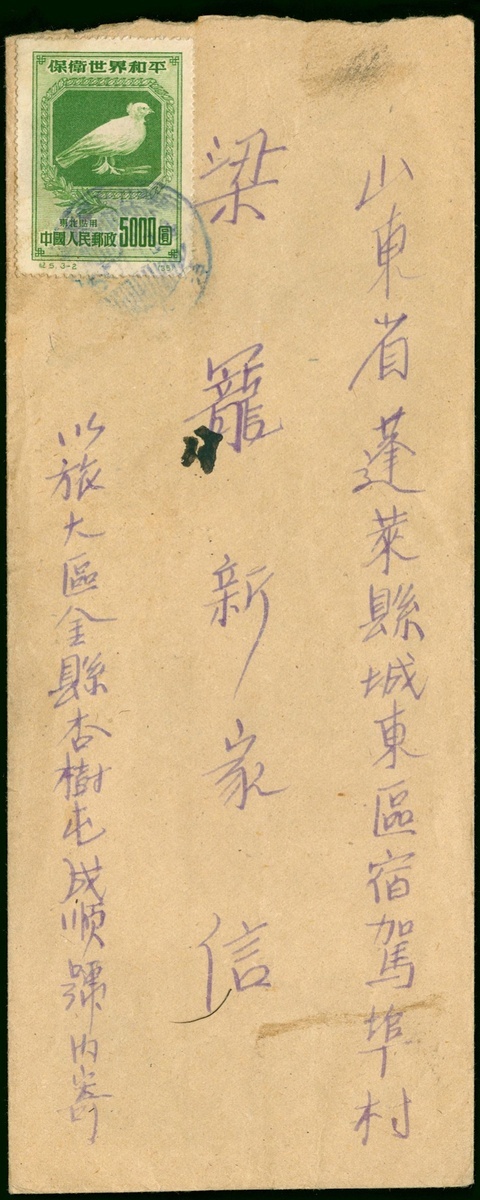 山東省蓬萊縣城東區宿駕埠村
梁龍新家信
以旅大區金縣杏樹屯成順號內寄
保衛世界和平
東北貼用
中國人民郵政5000圓
紀5.3-2